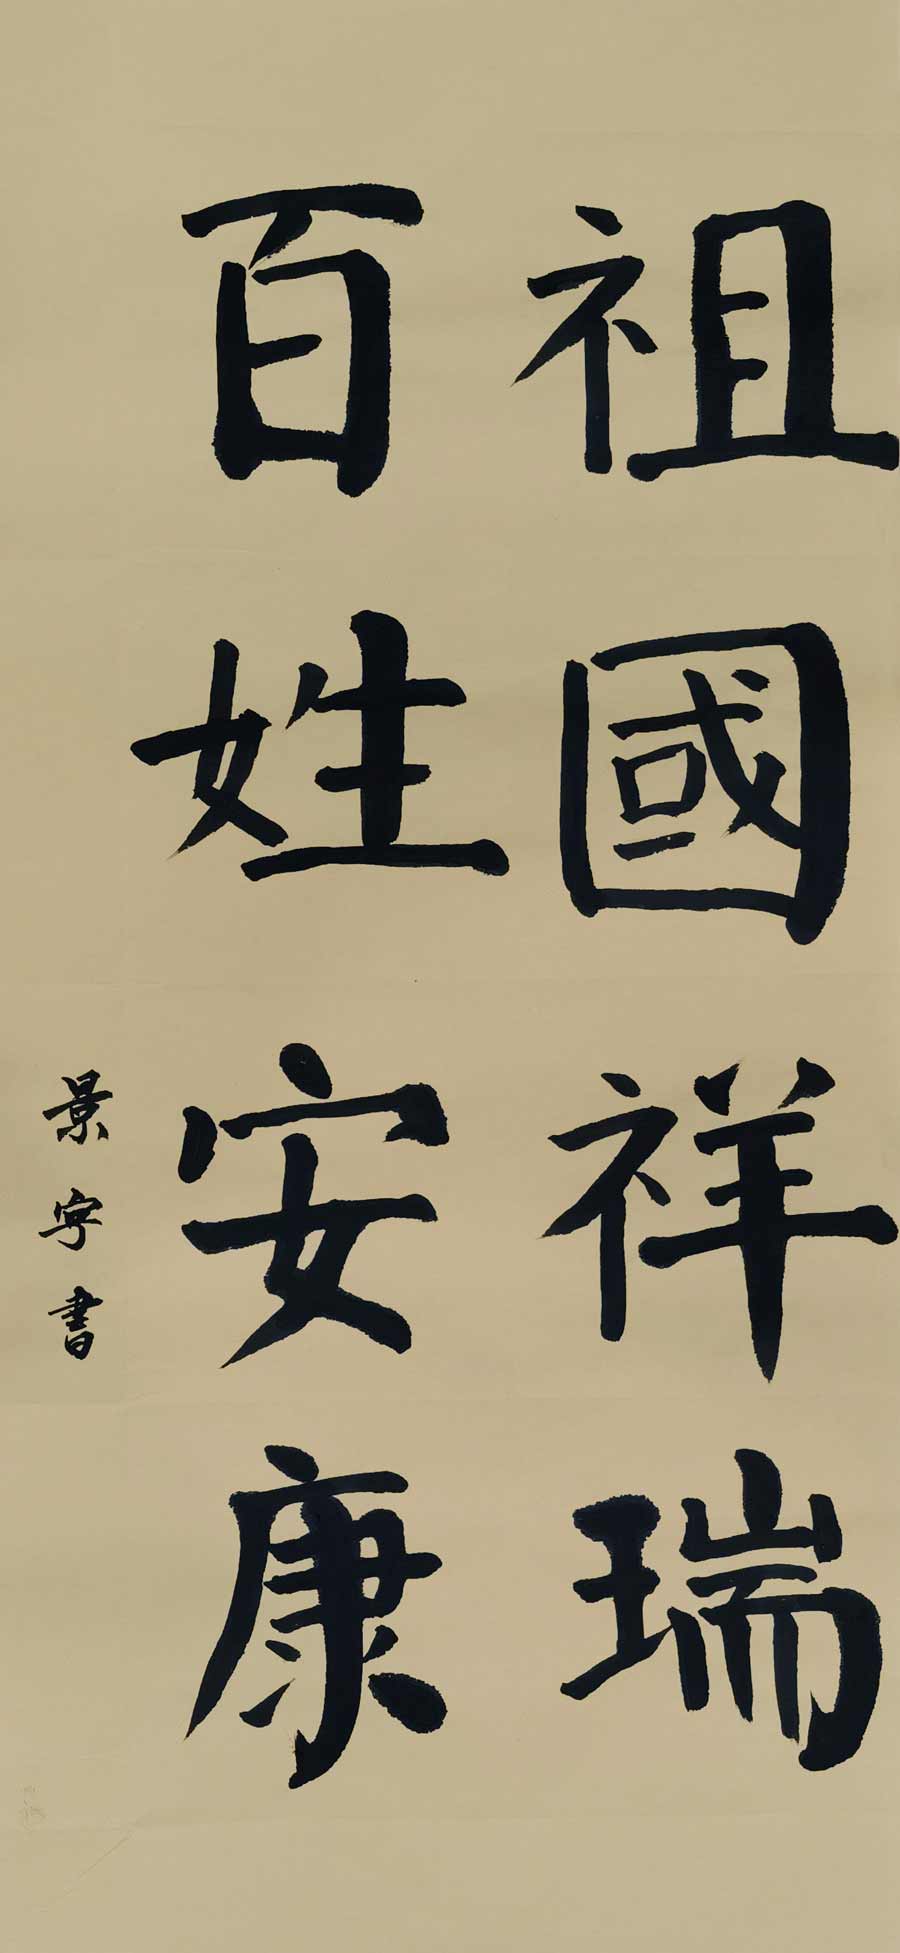 祖國祥瑞
百姓安康
景寧書